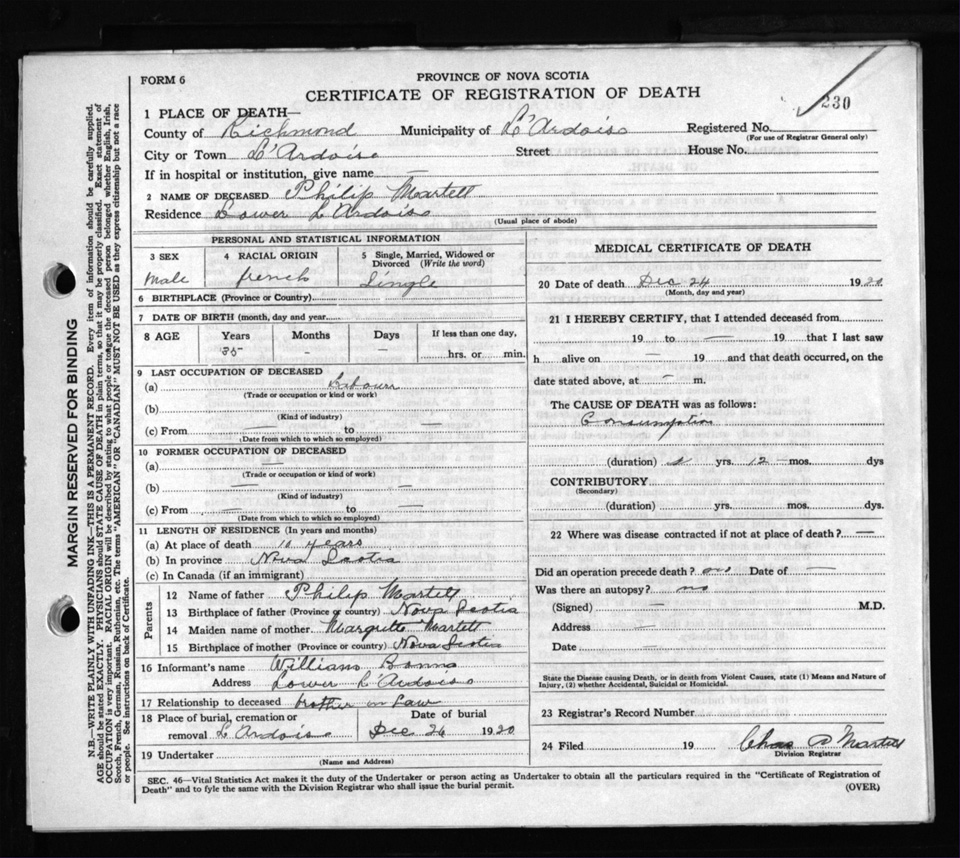 FORM 6
PROVINCE OF NOVA SCOTIA
CERTIFICATE OF REGISTRATION OF DEATH
230
1 PLACE OF DEATH—
County of Richmond Municipality of L'Ardoise Registered No.
(For use of Registrar General only)
City or Town L'Ardoise Street House No.
If in hospital or institution, give name —
2 NAME OF DECEASED Philip Martell
Residence Lower L'Ardoise
(Usual place of abode)
PERSONAL AND STATISTICAL INFORMATION
3 SEX 4 RACIAL ORIGIN 5 Single, Married, Widowed or Divorced (Write the word)
Male french Single
6 BIRTHPLACE (Province or Country)
7 DATE OF BIRTH (month, day and year)
8 AGE Years Months Days If less than one day,
35 - — hrs. or min.
9 LAST OCCUPATION OF DECEASED
(a)
(Trade or occupation or kind or work)
(b)
(Kind of industry)
(c) From — to —
(Date from which to which so employed)
10 FORMER OCCUPATION OF DECEASED
(a) —
(Trade or occupation or kind of work)
(b) — —
(Kind of industry)
(c) From — to —
(Date from which to which so employed)
11 LENGTH OF RESIDENCE (In years and months)
(a) At place of death years
(b) In province Nova Scotia
(c) In Canada (if an immigrant)
Parents
12 Name of father Philip Martell
13 Birthplace of father (Province or country) Nova Scotia
14 Maiden name of mother Margritte Martell
15 Birthplace of mother (Province or country) Nova Scotia
16 Informant's name William
Address Lower L'Ardoise
17 Relationship to deceased brother in Law
18 Place of burial, cremation or removal L'Ardoise
Date of burial
Dec 26 1920
19 Undertaker
(Name and Address)
MEDICAL CERTIFICATE OF DEATH
20 Date of death Dec 24 1920
(Month, day and year)
21 I HEREBY CERTIFY, that I attended deceased from
19 to — 19 that I last saw
h alive on — 19 and that death occurred, on the
date stated above, at — m.
The CAUSE OF DEATH was as follows:
Consumption
(duration) yrs. 12 mos. dys
CONTRIBUTORY
(Secondary)
(duration) yrs. mos. dys
22 Where was disease contracted if not at place of death? —
Did an operation precede death? no Date of —
Was there an autopsy? no
(Signed) — M.D.
Address —
Date —
State the Disease causing Death, or in death from Violent Causes, state (1) Means and Nature of
Injury, (2) whether Accidental, Suicidal or Homicidal.
23 Registrar's Record Number
24 Filed 19 Chas Martell
Division Registrar
SEC. 46—Vital Statistics Act makes it the duty of the Undertaker or person acting as Undertaker to obtain all the particulars required in the "Certificate of Registration of
Death" and to fyle the same with the Division Registrar who shall issue the burial permit.
(OVER)
MARGIN RESERVED FOR BINDING
N.B.—WRITE PLAINLY WITH UNFADING INK—THIS IS A PERMANENT RECORD. Every item of information should be carefully supplied.
AGE should be stated EXACTLY. PHYSICIANS should STATE CAUSE OF DEATH in plain terms, so that it may be properly classified. Exact statement of
OCCUPATION is very important. RACIAL ORIGIN will be described by stating to what people or tongue the deceased person belonged whether English, Irish,
Scotch, French, German, Russian, Ruthenian, etc. The terms "AMERICAN" OR "CANADIAN" MUST NOT BE USED as they express citizenship but not a race
or people. See instructions on back of Certificate.